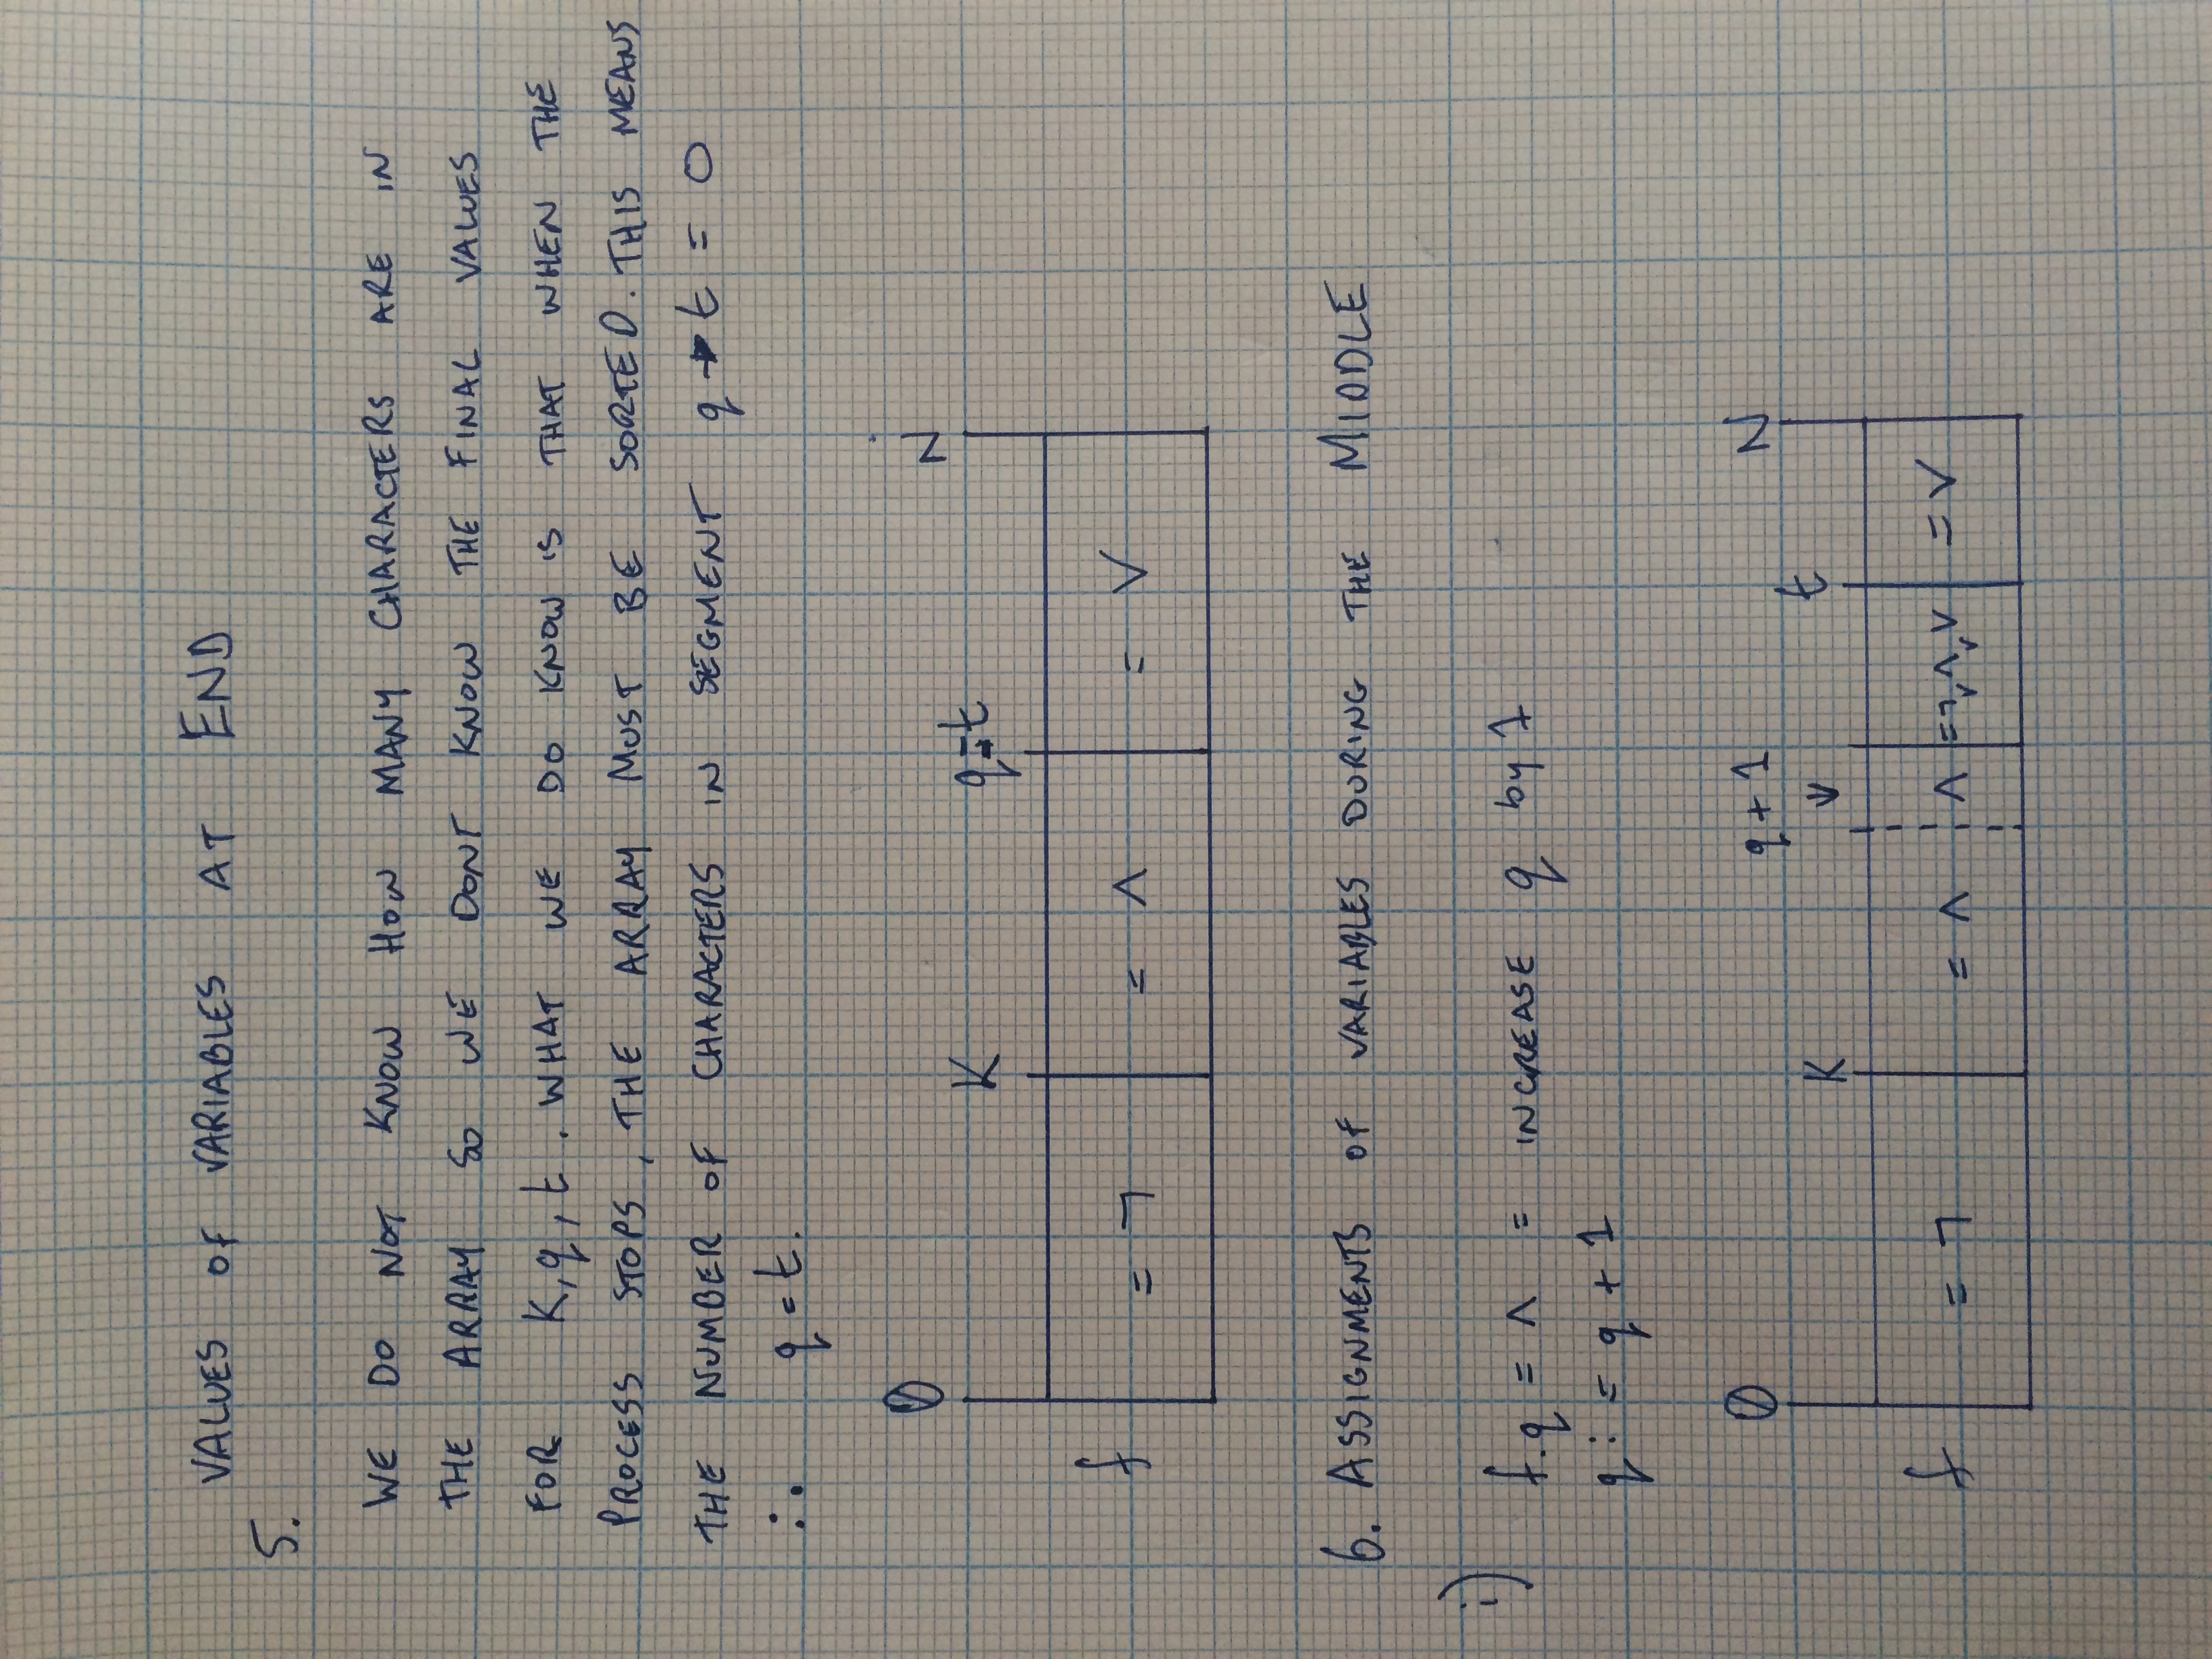 VALUES OF VARIABLES AT END
5.
WE DO NOT KNOW HOW MANY CHARACTERS ARE IN
THE ARRAY SO WE DONT KNOW THE FINAL VALUES
FOR K, q, t. WHAT WE DO KNOW IS THAT WHEN THE
PROCESS STOPS, THE ARRAY MUST BE SORTED. THIS MEANS
THE NUMBER OF CHARACTERS IN SEGMENT q → t = 0
∴ q = t.
0 N
K q = t
f = ¬ = ∧ = ∨
6. ASSIGNMENTS OF VARIABLES DURING THE MIDDLE
i)
f.q = ∧ = INCREASE q by 1
q := q + 1
0 q + 1 N
K ↓ t
f = ¬ = ∧ ∧ = ¬ ∨ ∧ ∨ ∨ = ∨